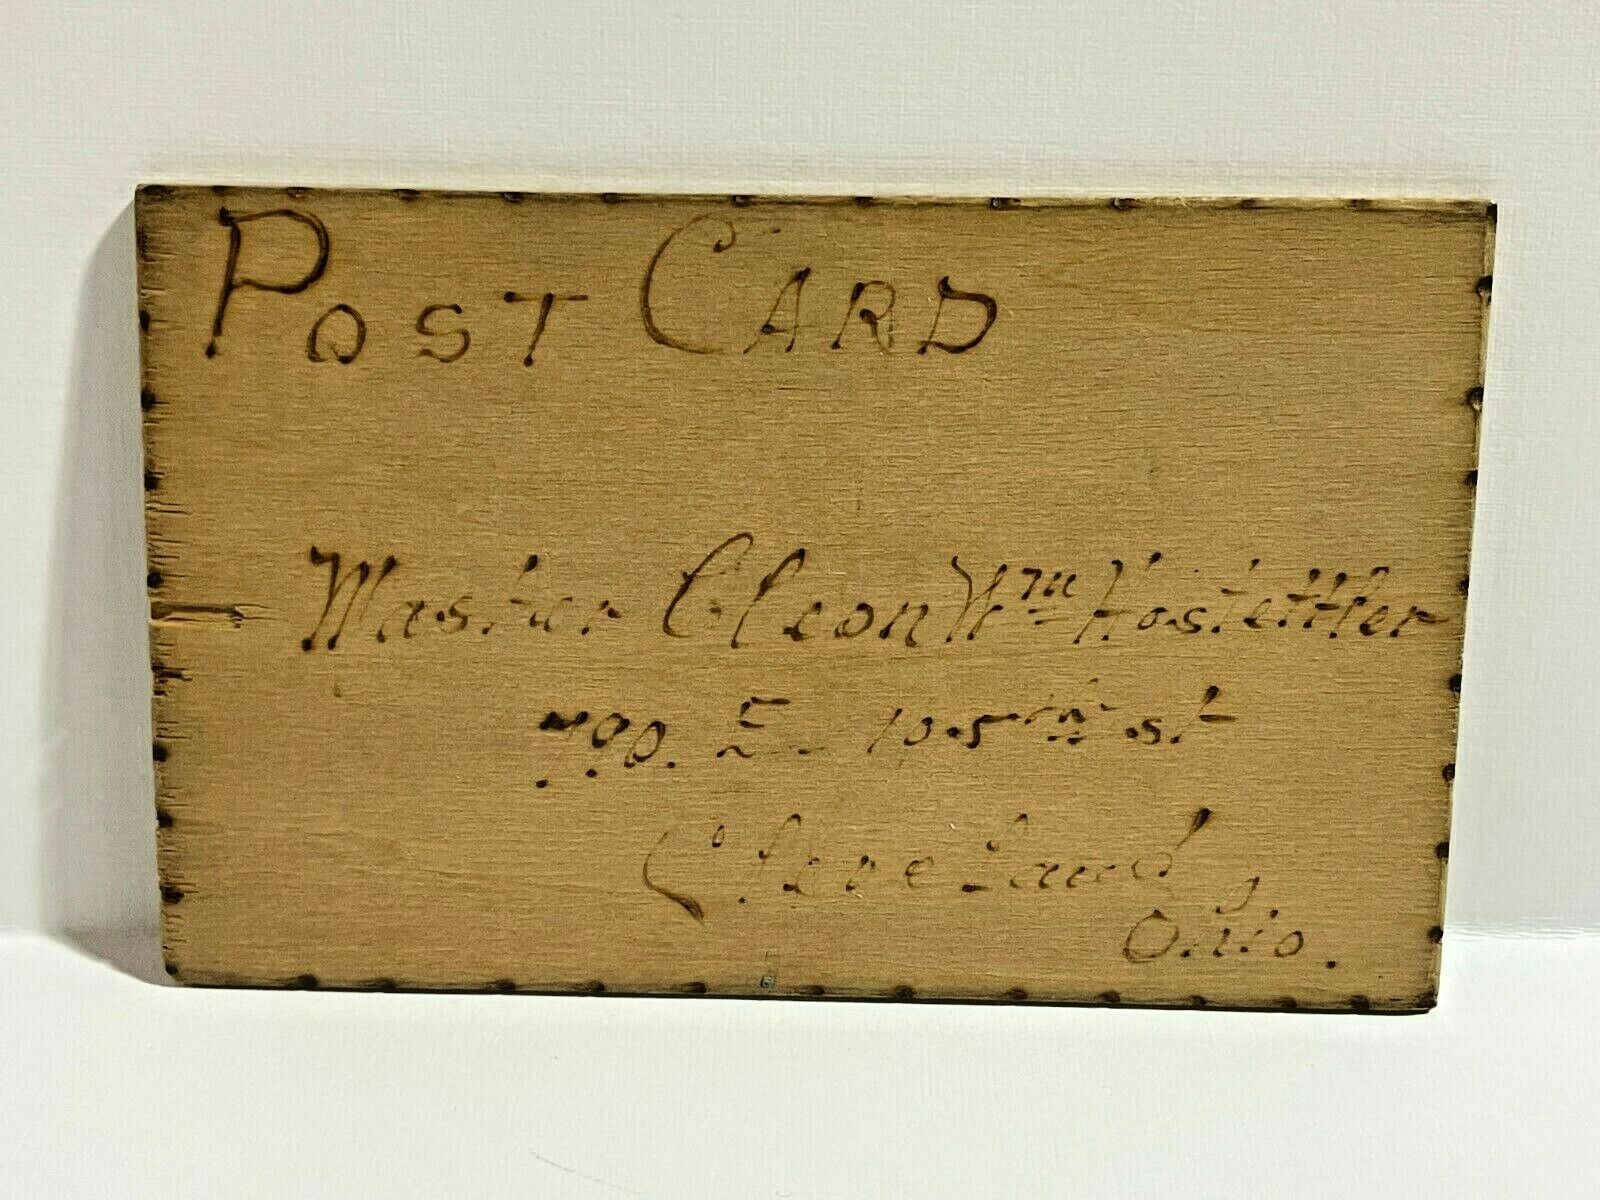 POST CARD
Master Cleon Wm Hostettler
790. E. 105th st
Cleveland,
Ohio.